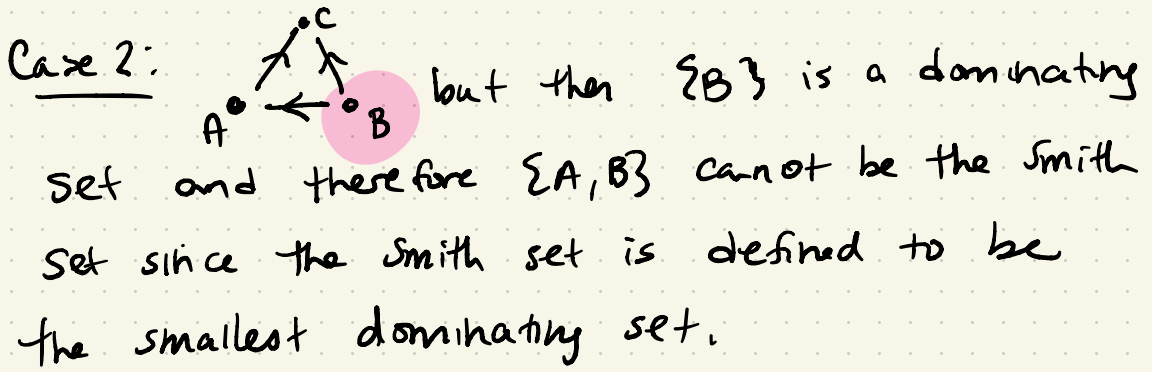 C
Case 2:
A
B
but then {B} is a dominating
set and therefore {A, B} cannot be the Smith
set since the Smith set is defined to be
the smallest dominating set.